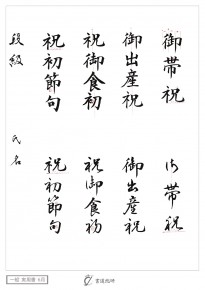 御帯祝
御出産祝
祝御食初
祝初節句
段級
御帯祝
御出産祝
祝御食初
祝初節句
氏名
一般 実用書 6月